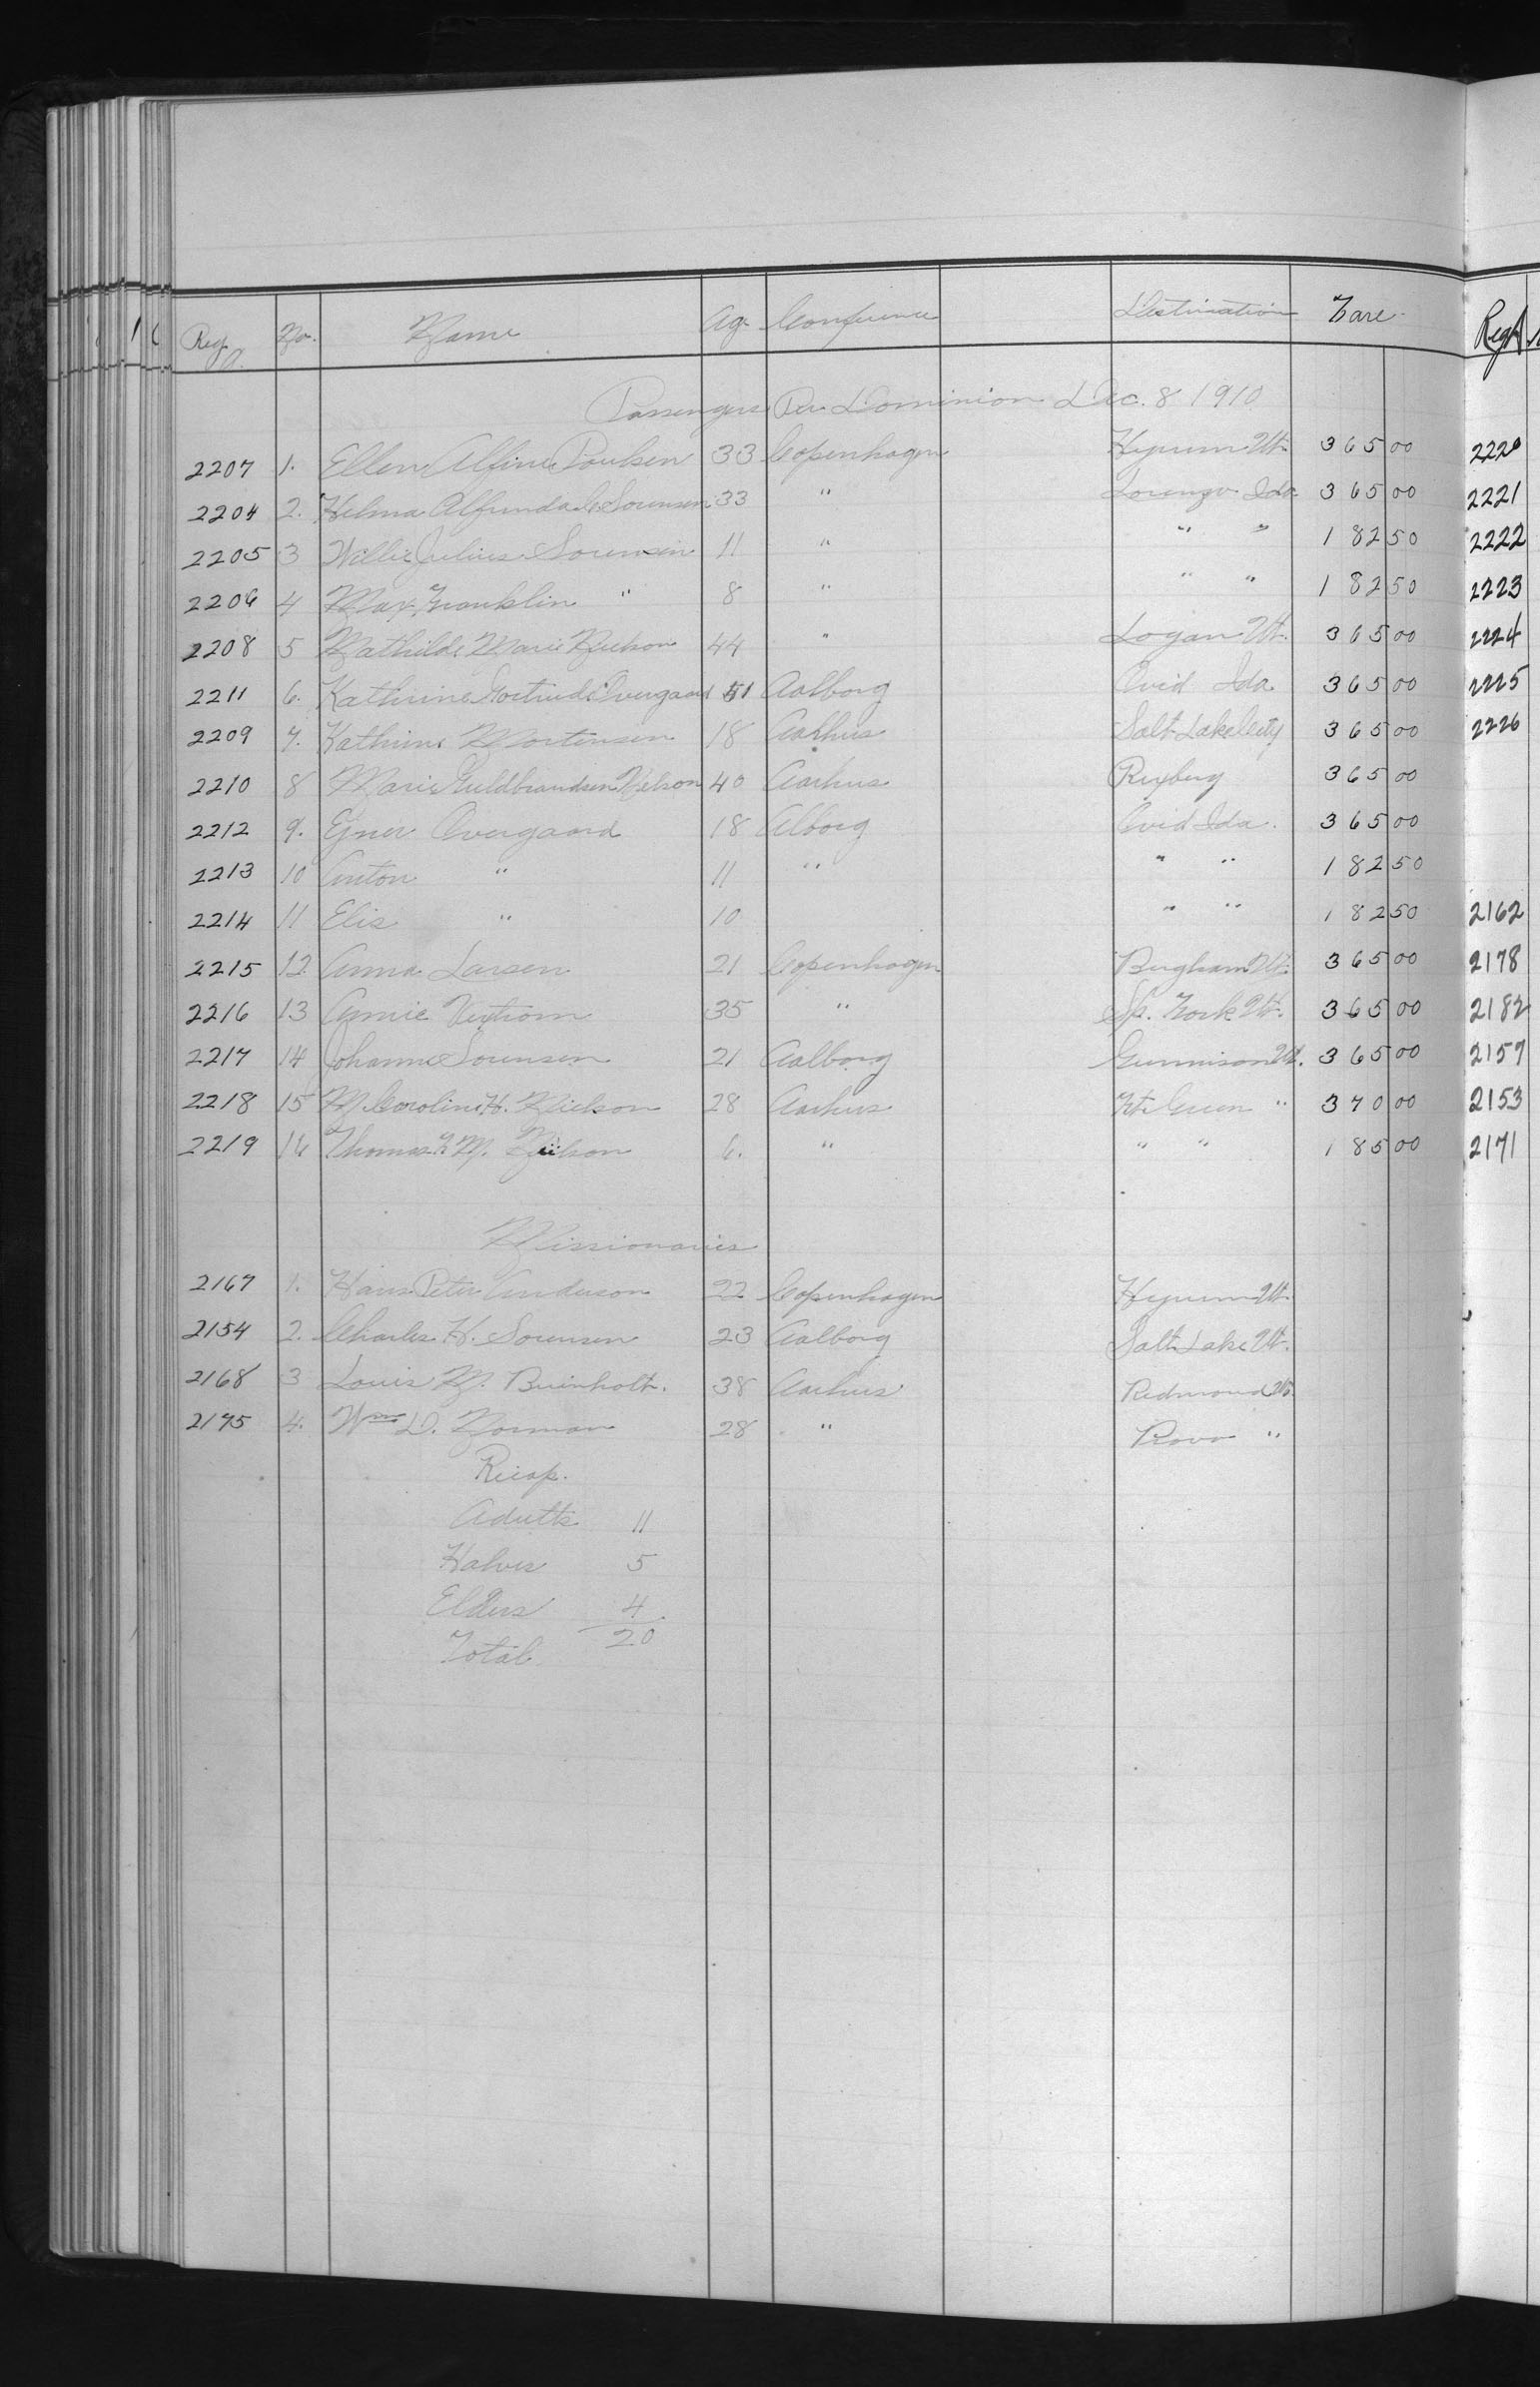 Reg. No. Name Age Conference Destination Fare Reg#
Passengers Per Dominion Dec. 8 1910
2207 1. Ellen Alfine Poulsen 33 Copenhagen Hyrum Ut. 365 00 2220
2204 2. Helma Alfrunda C. Sorensen 33 " Lorenzo Ida. 365 00 2221
2205 3 Willie Julius Sorensen 11 " " " 182 50 2222
2206 4 Max Franklin " 8 " " " 182 50 2223
2208 5 Mathilde Marie Nielson 44 " Logan Ut. 365 00 2224
2211 6. Kathrine Overgaard 51 Aalborg Ovid Ida. 365 00 2225
2209 7. Kathrine Mortensen 18 Aarhus Salt Lake City 365 00 2226
2210 8 Marie Guldbrandsen Nelson 40 Aarhus Rexberg 365 00
2212 9. Ejner Overgaard 18 Alborg Ovid Ida. 365 00
2213 10 Anton " 11 " " " 182 50
2214 11 Elis " 10 " " 182 50 2162
2215 12 Anna Larsen 21 Copenhagen Bingham Ut. 365 00 2178
2216 13 Annie 35 " Sp. Fork Ut. 365 00 2182
2217 14 Johanne Sorensen 21 Aalborg Gunnison Ut. 365 00 2157
2218 15 M. Caroline H. Nielson 28 Aarhus Ft. Green " 370 00 2153
2219 16 Thomas F. M. Neilson 6. " " " 185 00 2171
Missionaries
2167 1. Hans Peter Anderson 22 Copenhagen Hyrum Ut.
2154 2. Charles H. Sorensen 23 Aalborg Salt Lake Ut.
2168 3 Louis M. 38 Aarhus Redmond Ut.
2175 4. Wm D. Norman 28 " Provo "
Recap.
Adults 11
Halves 5
Elders 4
Total 20